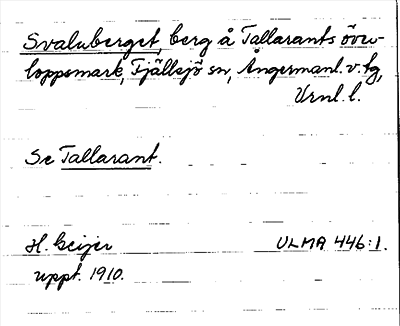 Svaluberget, berg å Tallarants över-
loppsmark, Fjällsjö sn, Ångermanl. v. tg,
Vrnl. l.
Se Tallarant.
H. Geijer ULMA 446:1.
uppt. 1910.